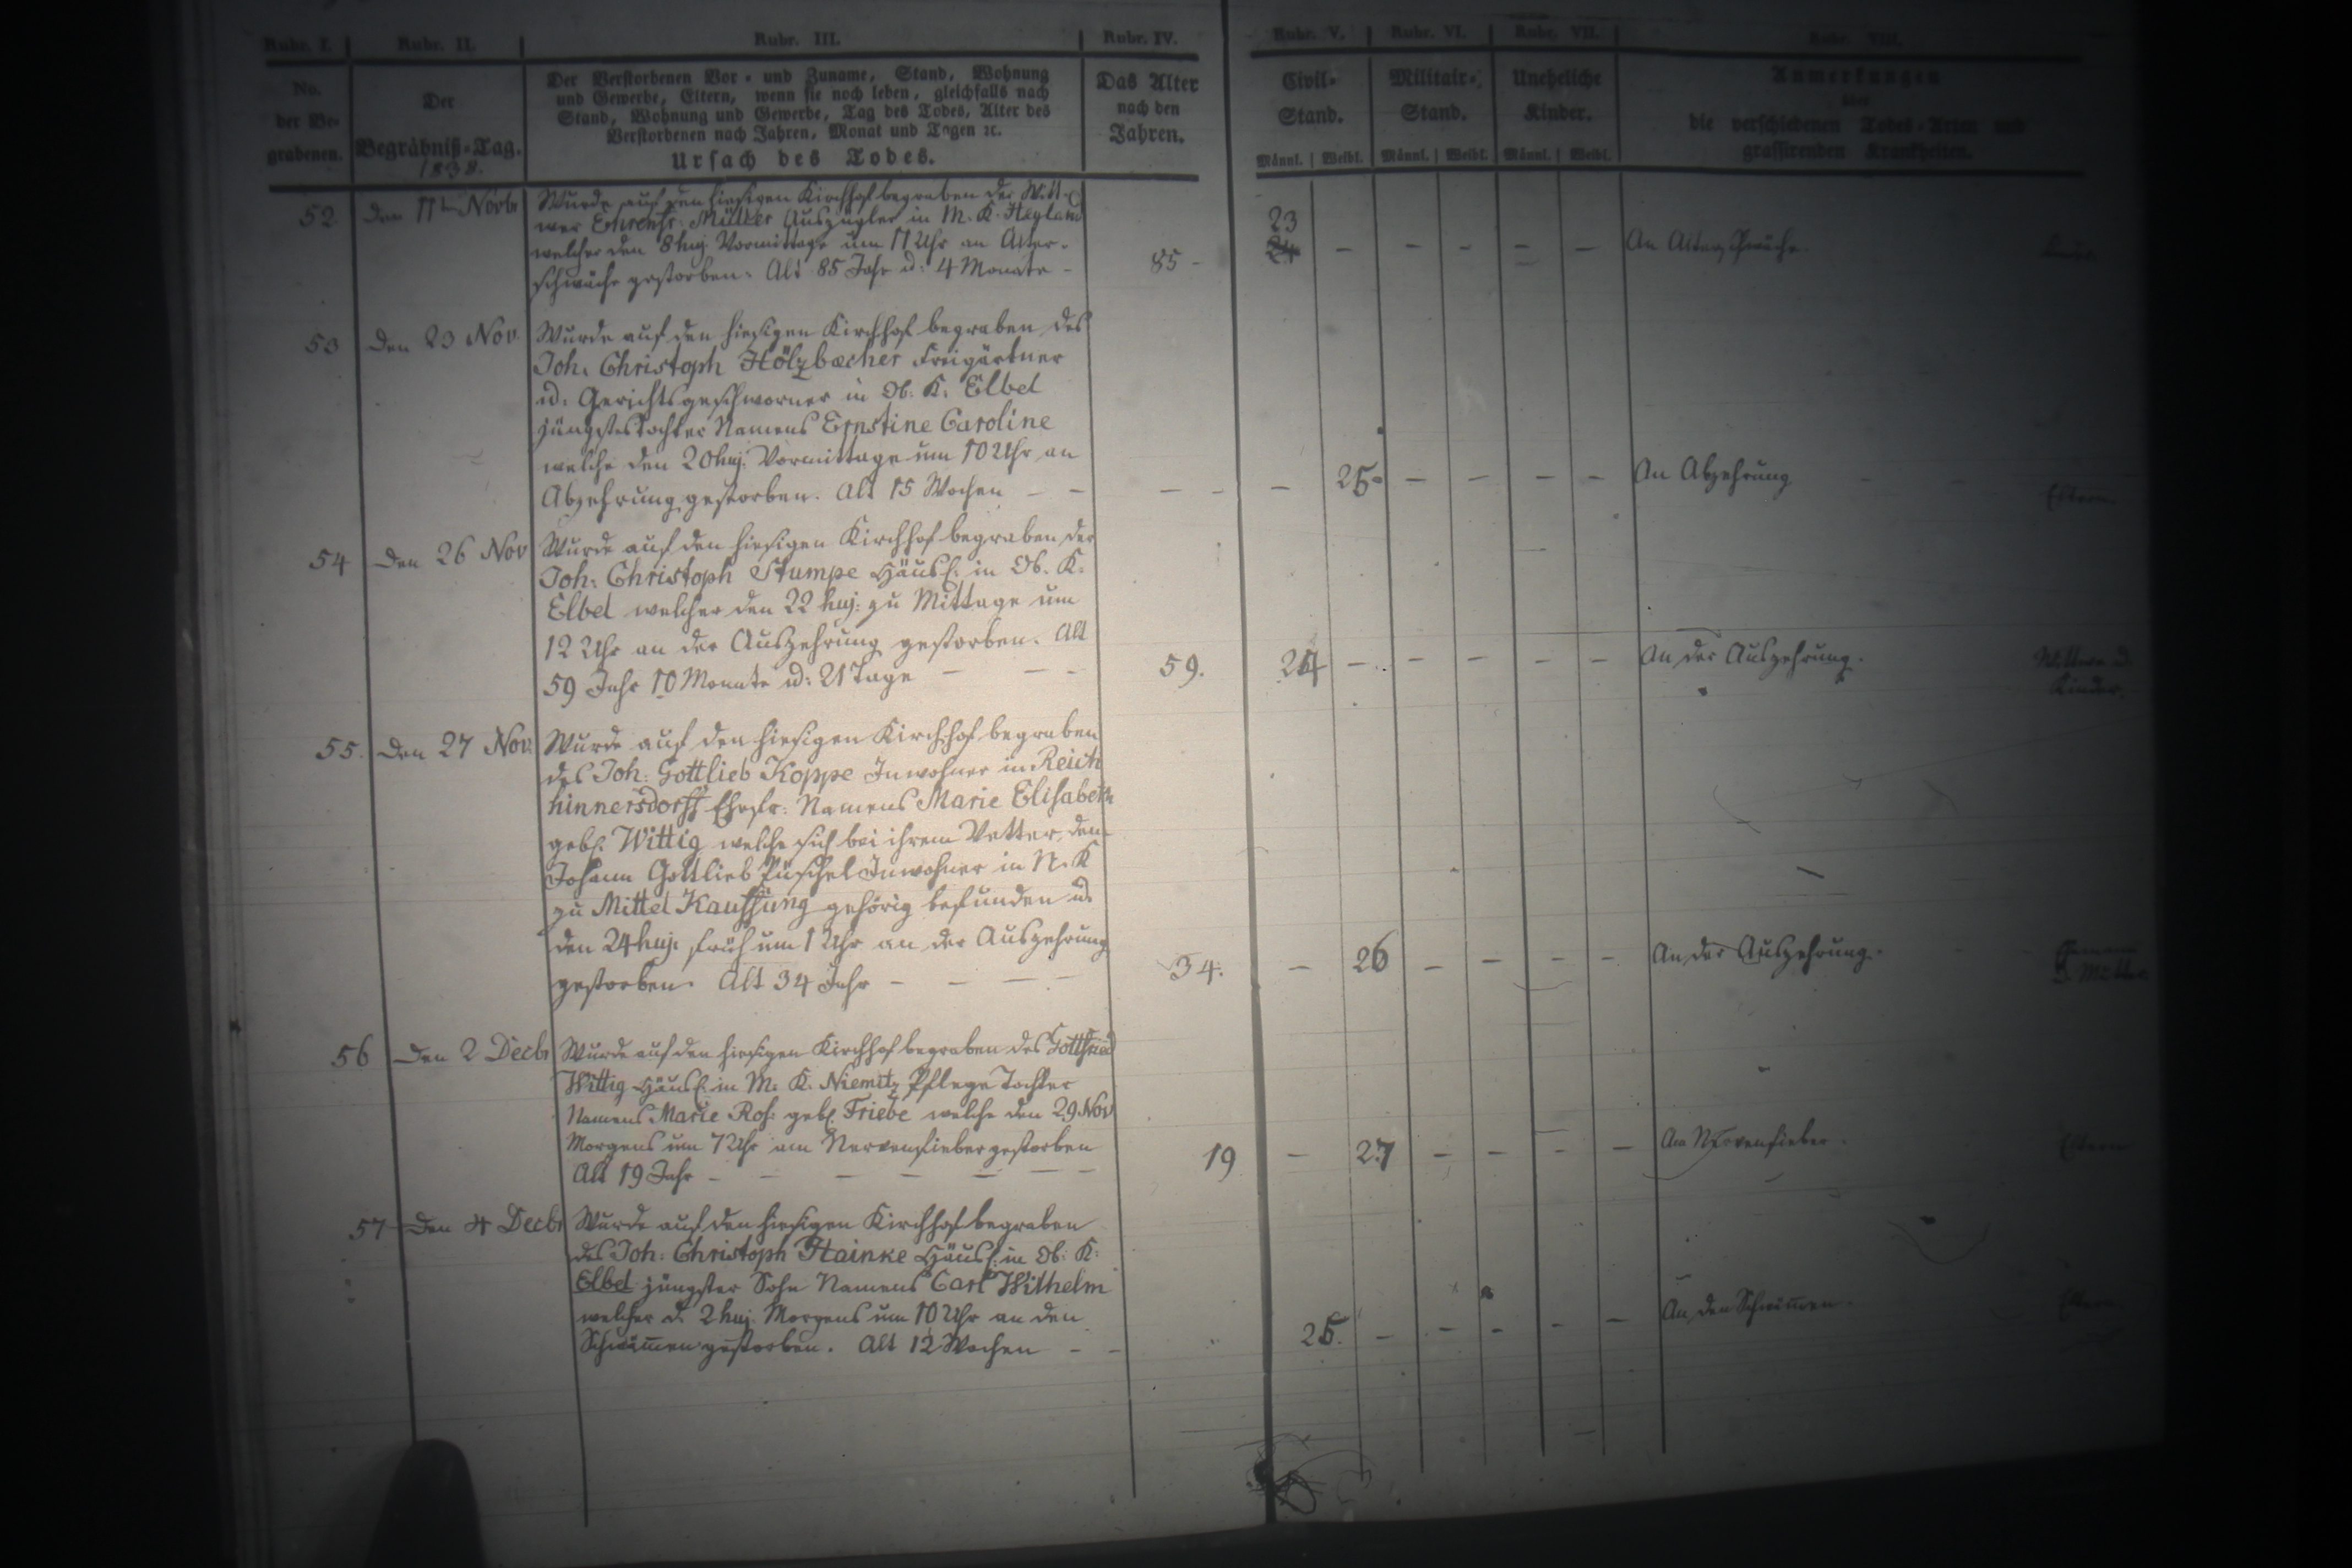 Rubr. I. Rubr. II. Rubr. III. Rubr. IV. Rubr. V. Rubr. VI. Rubr. VII. Rubr. VIII.
No.
der Be-
grabenen.
Der
Begräbniß-Tag.
1838.
Der Verstorbenen Vor- und Zuname, Stand, Wohnung
und Gewerbe, Eltern, wenn sie noch leben, gleichfalls nach
Stand, Wohnung und Gewerbe, Tag des Todes, Alter des
Verstorbenen nach Jahren, Monat und Tagen ꝛc.
Ursach des Todes.
Das Alter
nach den
Jahren.
Civil-
Stand.
Männl. Weibl.
Militair-
Stand.
Männl. Weibl.
Uneheliche
Kinder.
Männl. Weibl.
Anmerkungen
über
die verschiedenen Todes-Arten und
grassirenden Krankheiten.
52 Den 11t Novbr
Wurde auf den hiesigen Kirchhof begraben der Witt-
wer Ehrenfr: Müller Auszügler in M. K. Heyland
welcher den 8 huj. Vormittage um 11 Uhr an Alter-
schwäche gestorben. Alt 85 Jahr u: 4 Monate -
85 -
23
24 - - - - -
An Altersschwäche.
53 Den 23 Nov
Wurde auf den hiesigen Kirchhof begraben des
Joh: Christoph Hölzbecher Freigärtner
u: Gerichtsgeschworner in Ob: K: Elbel
jüngstes Tochter Namens Ernstine Caroline
welche den 20 huj. Vormittage um 10 Uhr an
Abzehrung gestorben. Alt 15 Wochen - -
- - - 25 - - - - -
An Abzehrung
Eltern
54 Den 26 Nov
Wurde auf den hiesigen Kirchhof begraben der
Joh: Christoph Stumpe Häusl: in Ob. K.
Elbel welcher den 22 huj: zu Mittage um
12 Uhr an der Auszehrung gestorben. Alt
59 Jahr 10 Monate u: 21 Tage - - -
59. 24 - - - - -
An der Auszehrung.
Wittwe u
Kinder
55. Den 27 Nov:
Wurde auf den hiesigen Kirchhof begraben
des Joh: Gottlieb Koppe Inwohner in Reich
hinnersdorff Ehefr: Namens Marie Elisabeth
gebl. Wittig welche sich bei ihrem Vetter, dem
Johann Gottlieb Püschel Inwohner in N. K
zu Mittel Kauffung gehörig befunden u.
den 24 huj: früh um 1 Uhr an der Auszehrung
gestorben. Alt 34 Jahr - - - -
34. - 26 - - - -
An der Auszehrung.
56 Den 2 Decbr
Wurde auf den hiesigen Kirchhof begraben des Gottfried
Wittig Häusl: in M. K. Niemitz Pflege Tochter
Namens Marie Ros: gebl. Friebe welche den 29 Nov
Morgens um 7 Uhr am Nervenfieber gestorben
Alt 19 Jahr - - - - - -
19 - 27 - - - -
Am Nervenfieber.
Eltern
57 Den 4 Decbr
Wurde auf den hiesigen Kirchhof begraben
des Joh: Christoph Hainke Häusl: in Ob: K:
Elbel jüngster Sohn Namens Carl Wilhelm
welcher d. 2 huj. Morgens um 10 Uhr an den
Schwämmen gestorben. Alt 12 Wochen - -
25. - - - - -
An den Schwämmen.
Eltern